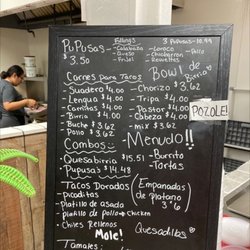 PuPusas
$3.50
Fillings
-Calabaza
-Queso
-Frijol
3 PuPusas - 10.99
-Loroco
-Chicharron
-Revueltas
-Pollo
Carnes Para Tacos
Suadero $4.00
Lengua $4.00
Carnitas $4.00
Birria $4.00
Buche $3.62
Pollo $3.62
Bowl de
Birria
-Chorizo $3.62
-Tripa $4.00
-Pastor $4.00
-Cabeza $4.00
-mix $3.62
POZOLE!
Combos:
-Quesabirria $15.51
-Pupusas $14.48
Menudo!!
-Burrito
-Tortas
-Tacos Dorados
-Picaditas
-Platillo de asado
-platillo de pollo → Chicken
-Chiles Rellenos
Mole!
Tamales:
(Empanadas
de platano
3
Quesadillas